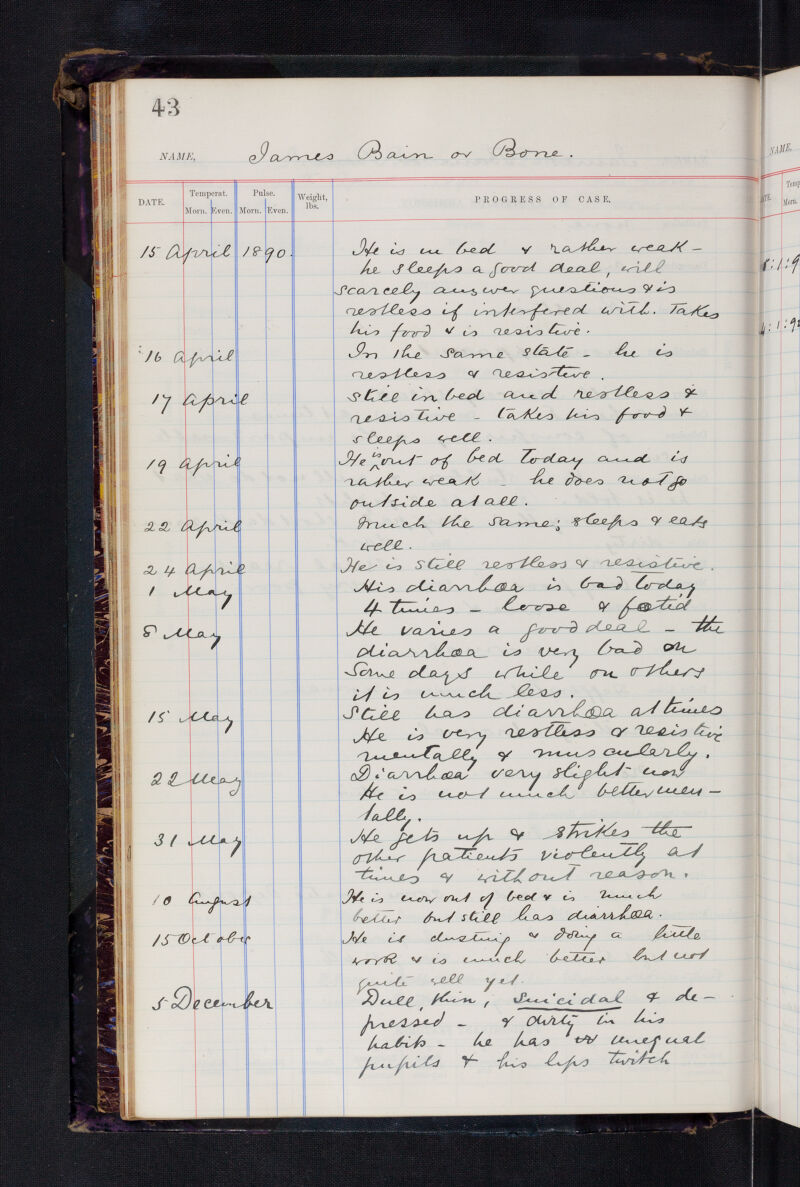 43
NAME, James Bain or Bone.
DATE. Temperat. Pulse. Weight, lbs. PROGRESS OF CASE.
Morn. Even. Morn. Even.
15 April 1890. He is in bed & rather weak –
he sleeps a good deal, will
scarcely answer questions & is
restless if interfered with. Takes
his food & is resistive.
16 April In the same state – he is
restless & resistive.
17 April Still in bed and restless &
resistive – takes his food &
sleeps well.
19 April He is out of bed today and is
rather weak he does not go
outside at all.
22 April Much the same; sleeps & eats
well.
24 April He is still restless & resistive.
1 May His diarrhœa is bad today
4 times – loose & fœtid
8 May He varies a good deal – the
diarrhœa is very bad on
some days while on others
it is much less.
15 May Still has diarrhœa at times
He is very restless & resistive
mentally & muscularly.
22 May Diarrhœa very slight now
He is not much better men–
tally.
31 May He gets up & strikes the
other patients violently at
times & without reason.
10 August He is now out of bed & is much
better but still has diarrhœa.
15 October He is dusting & doing a little
work & is much better but not
quite well yet.
5 December Dull, thin, suicidal & de–
pressed – & dirty in his
habits – he has unequal
pupils & his lips twitch
NAME.
DATE. Temp
Morn.